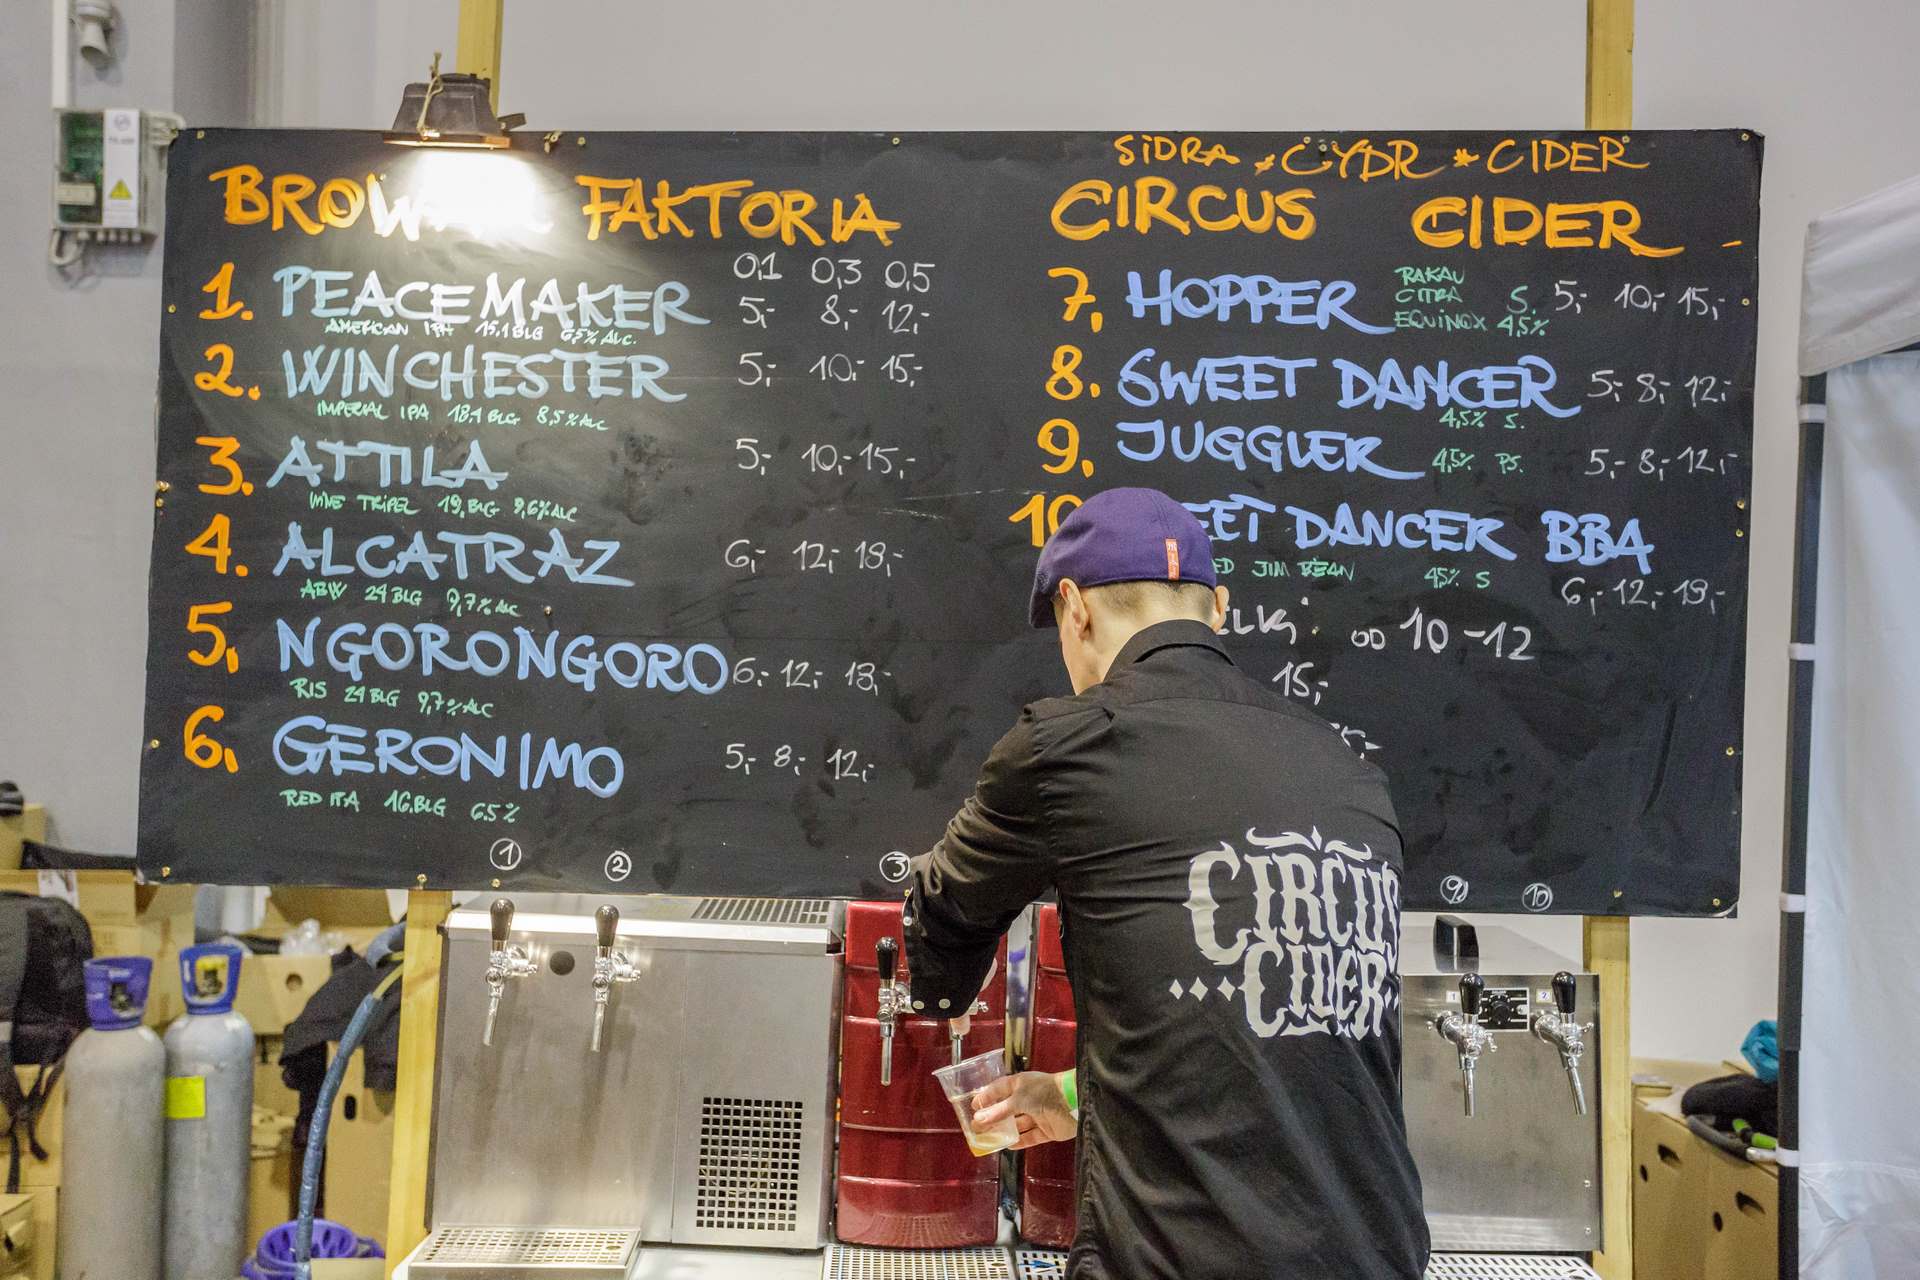 BROWAR FAKTORIA
0,1 0,3 0,5
1. PEACEMAKER 5,- 8,- 12,-
AMERICAN IPA 15,1 BLG 6,5% ALC.
2. WINCHESTER 5,- 10,- 15,-
IMPERIAL IPA 18,1 BLG 8,5% ALC
3. ATTILA 5,- 10,- 15,-
TRIPEL 19, BLG 9,6% ALC
4. ALCATRAZ 6,- 12,- 18,-
ABW 24 BLG 9,7% ALC
5, NGORONGORO 6,- 12,- 18,-
RIS 24 BLG 9,7% ALC
6. GERONIMO 5,- 8,- 12,-
RED 16, BLG 6,5%
1 2 3
SIDRA * CYDR * CIDER
CIRCUS CIDER
7, HOPPER RAKAU CITRA EQUINOX S. 4,5% 5,- 10,- 15,-
8. SWEET DANCER 5,- 8,- 12,-
4,5% S.
9. JUGGLER 4,5% PS. 5,- 8,- 12,-
10 EET DANCER BBA
ED JIM BEAN 4,5% S 6,- 12,- 18,-
OD 10-12
15,-
9 10
CIRCUS
CIDER
1 2